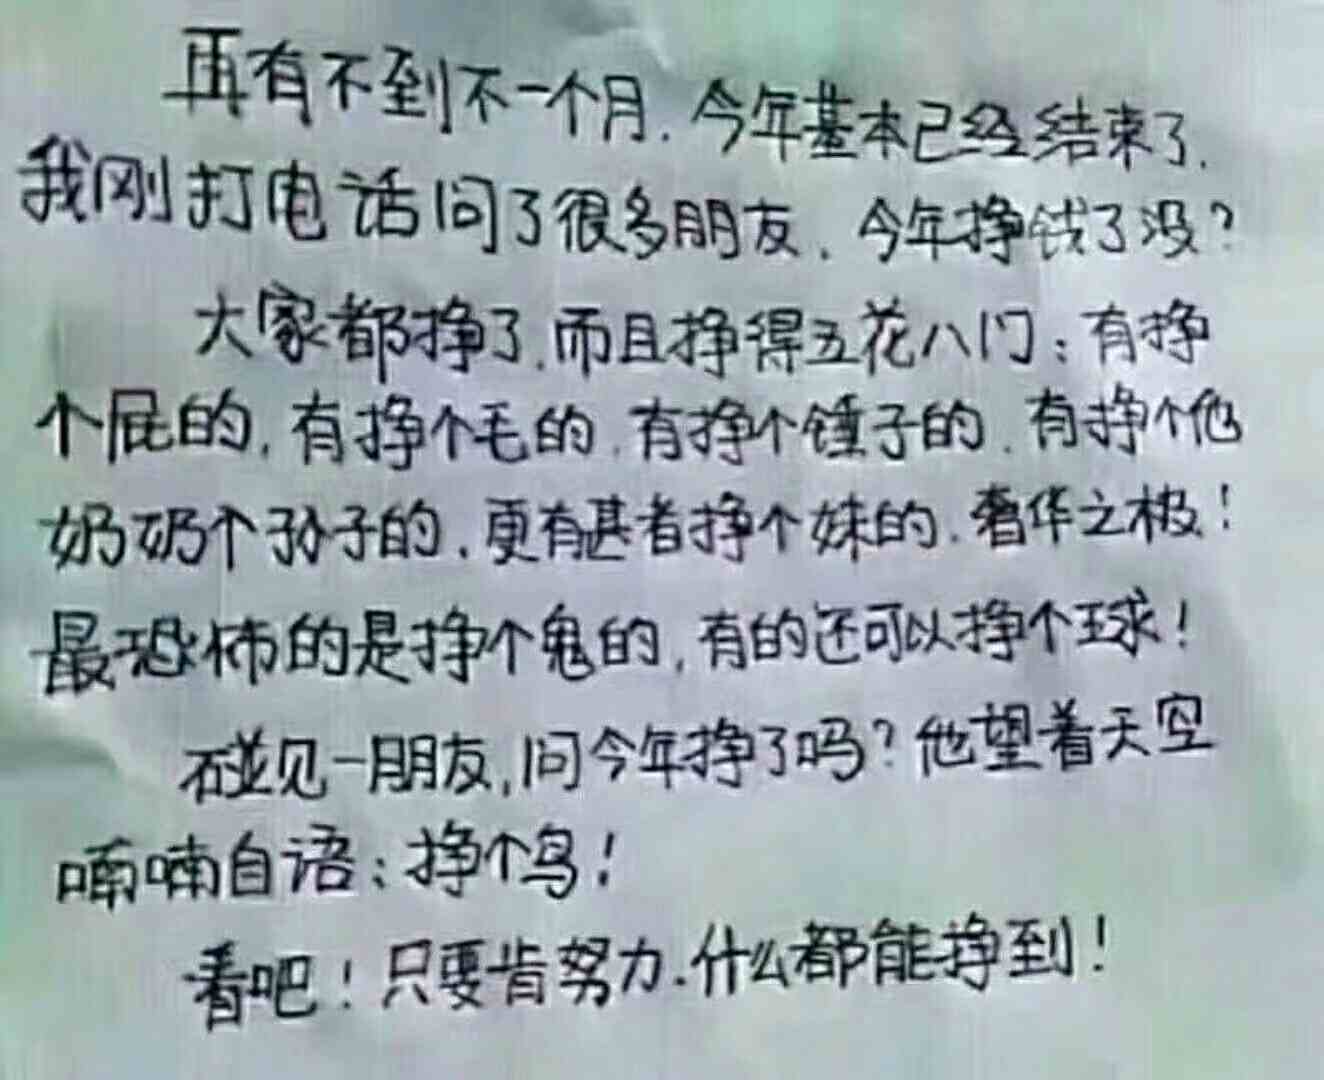 再有不到不一个月.今年基本已经结束了.
我刚打电话问了很多朋友.今年挣钱了没?
大家都挣了.而且挣得五花八门:有挣
个屁的,有挣个毛的.有挣个锤子的.有挣个他
奶奶个孙子的.更有甚者挣个妹的.奢华之极!
最恐怖的是挣个鬼的,有的还可以挣个球!
碰见一朋友,问今年挣了吗?他望着天空
喃喃自语:挣个鸟!
看吧!只要肯努力.什么都能挣到!